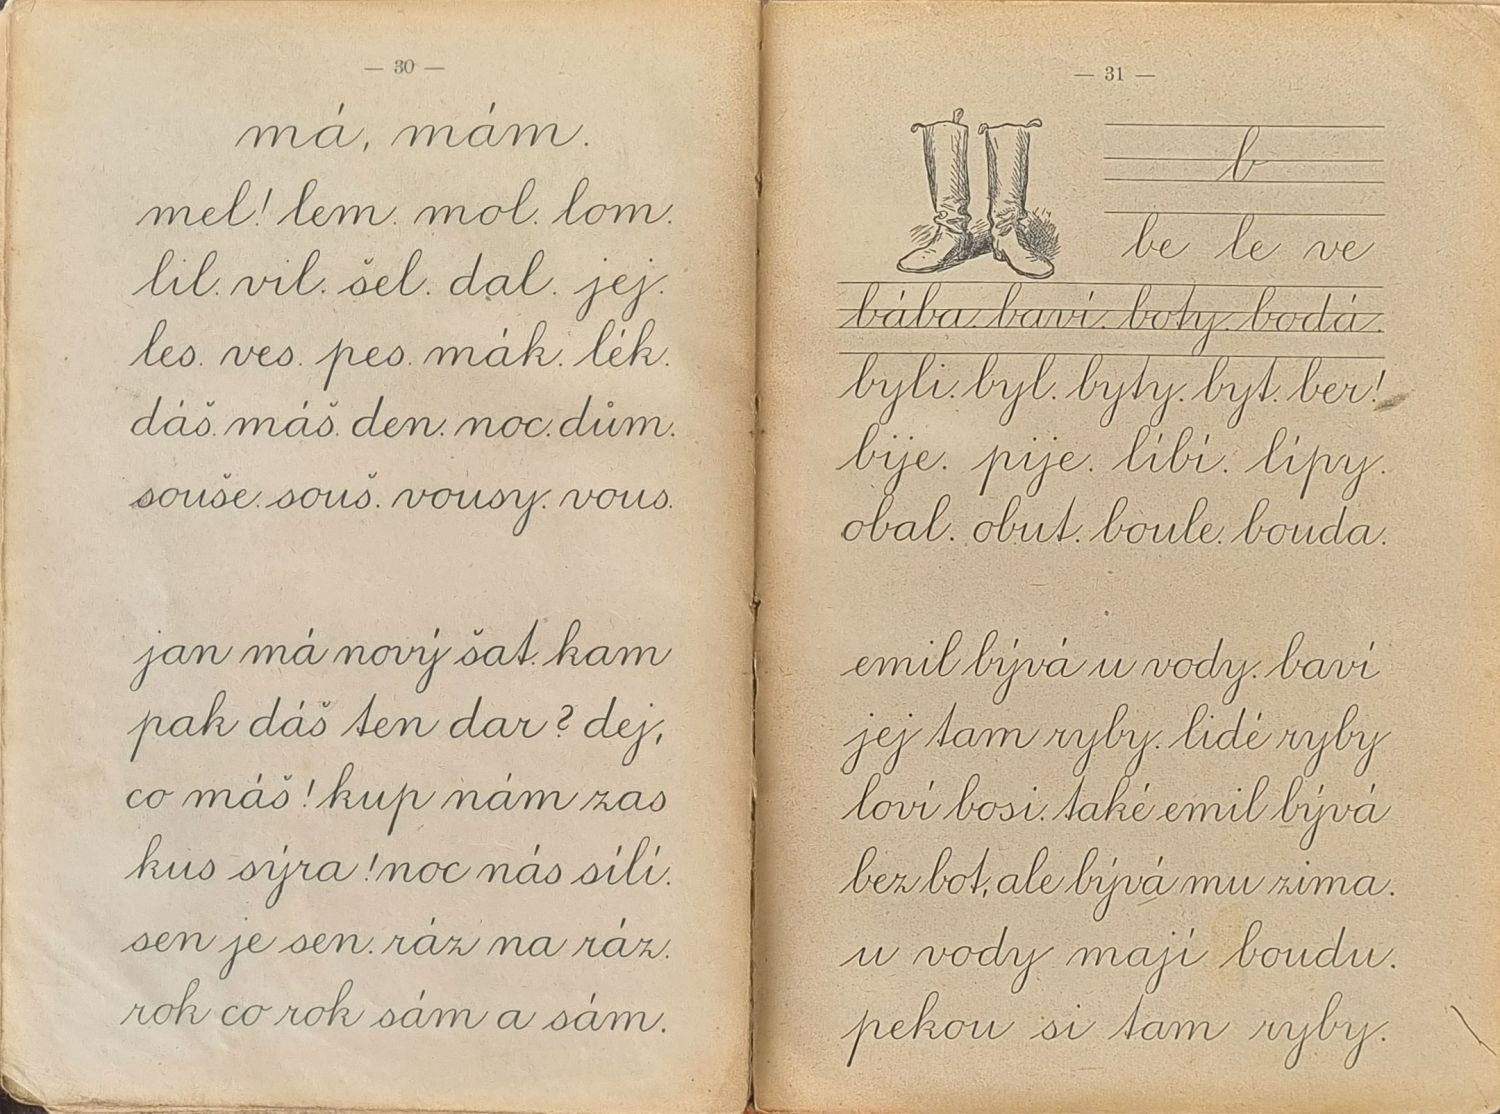 — 30 —
má, mám.
mel! lem. mol. lom.
lil. vil. šel. dal. jej.
les. ves. pes. mák. lék.
dáš. máš. den. noc. dům.
souše. souš. vousy. vous.
jan má nový šat. kam
pak dáš ten dar? dej,
co máš! kup nám zas
kus sýra! noc nás sílí.
sen je sen. ráz na ráz.
rok co rok sám a sám.
— 31 —
b
be le ve
bába. baví. boty. bodá.
byli. byl. byty. byt. ber!
bije. pije. líbí. lípy.
obal. obut. boule. bouda.
emil bývá u vody. baví
jej tam ryby. lidé ryby
loví bosi. také emil bývá
bez bot, ale bývá mu zima.
u vody mají boudu.
pekou si tam ryby.